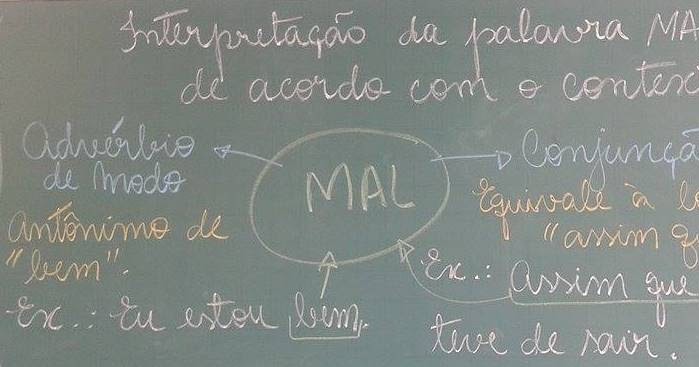 Interpretação da palavra MA
de acordo com o contex
Advérbio
de Modo
Antônimo de
"bem".
Ex.: Eu estou bem.
MAL
Conjunçã
Equivale à lo
"assim q
Ex.: Assim que
teve de sair.